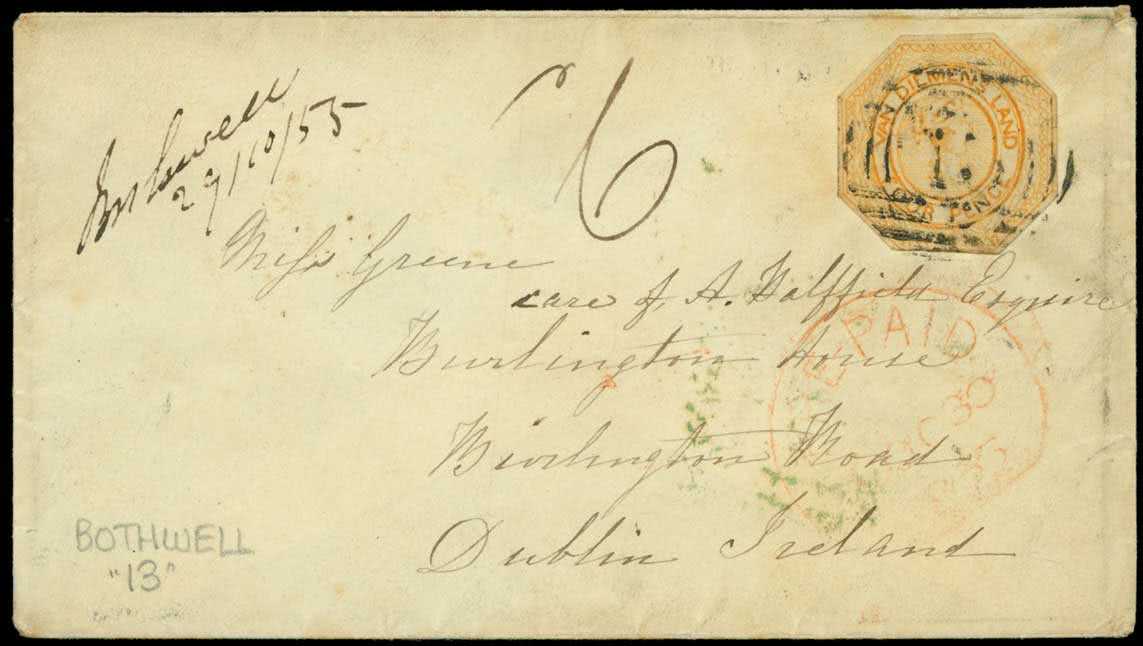 Bothwell
29/10/55
6
VAN DIEMENS LAND
FOUR PENCE
Miss Greene
care of A. Halffield Esquire
Burlington House
Burlington Road
Dublin Ireland
PAID
30
BOTHWELL
"13"